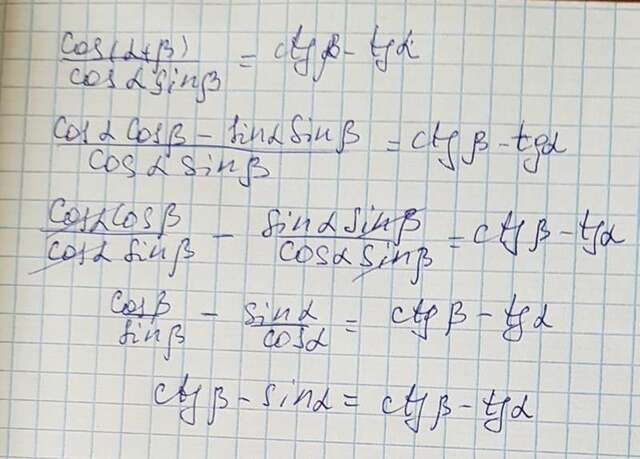 cos(α+β)/cosα sinβ = ctgβ - tgα
cosα cosβ - sinα sinβ/cosα sinβ = ctgβ - tgα
cosα cosβ/cosα sinβ - sinα sinβ/cosα sinβ = ctgβ - tgα
cosβ/sinβ - sinα/cosα = ctgβ - tgα
ctgβ - sinα = ctgβ - tgα